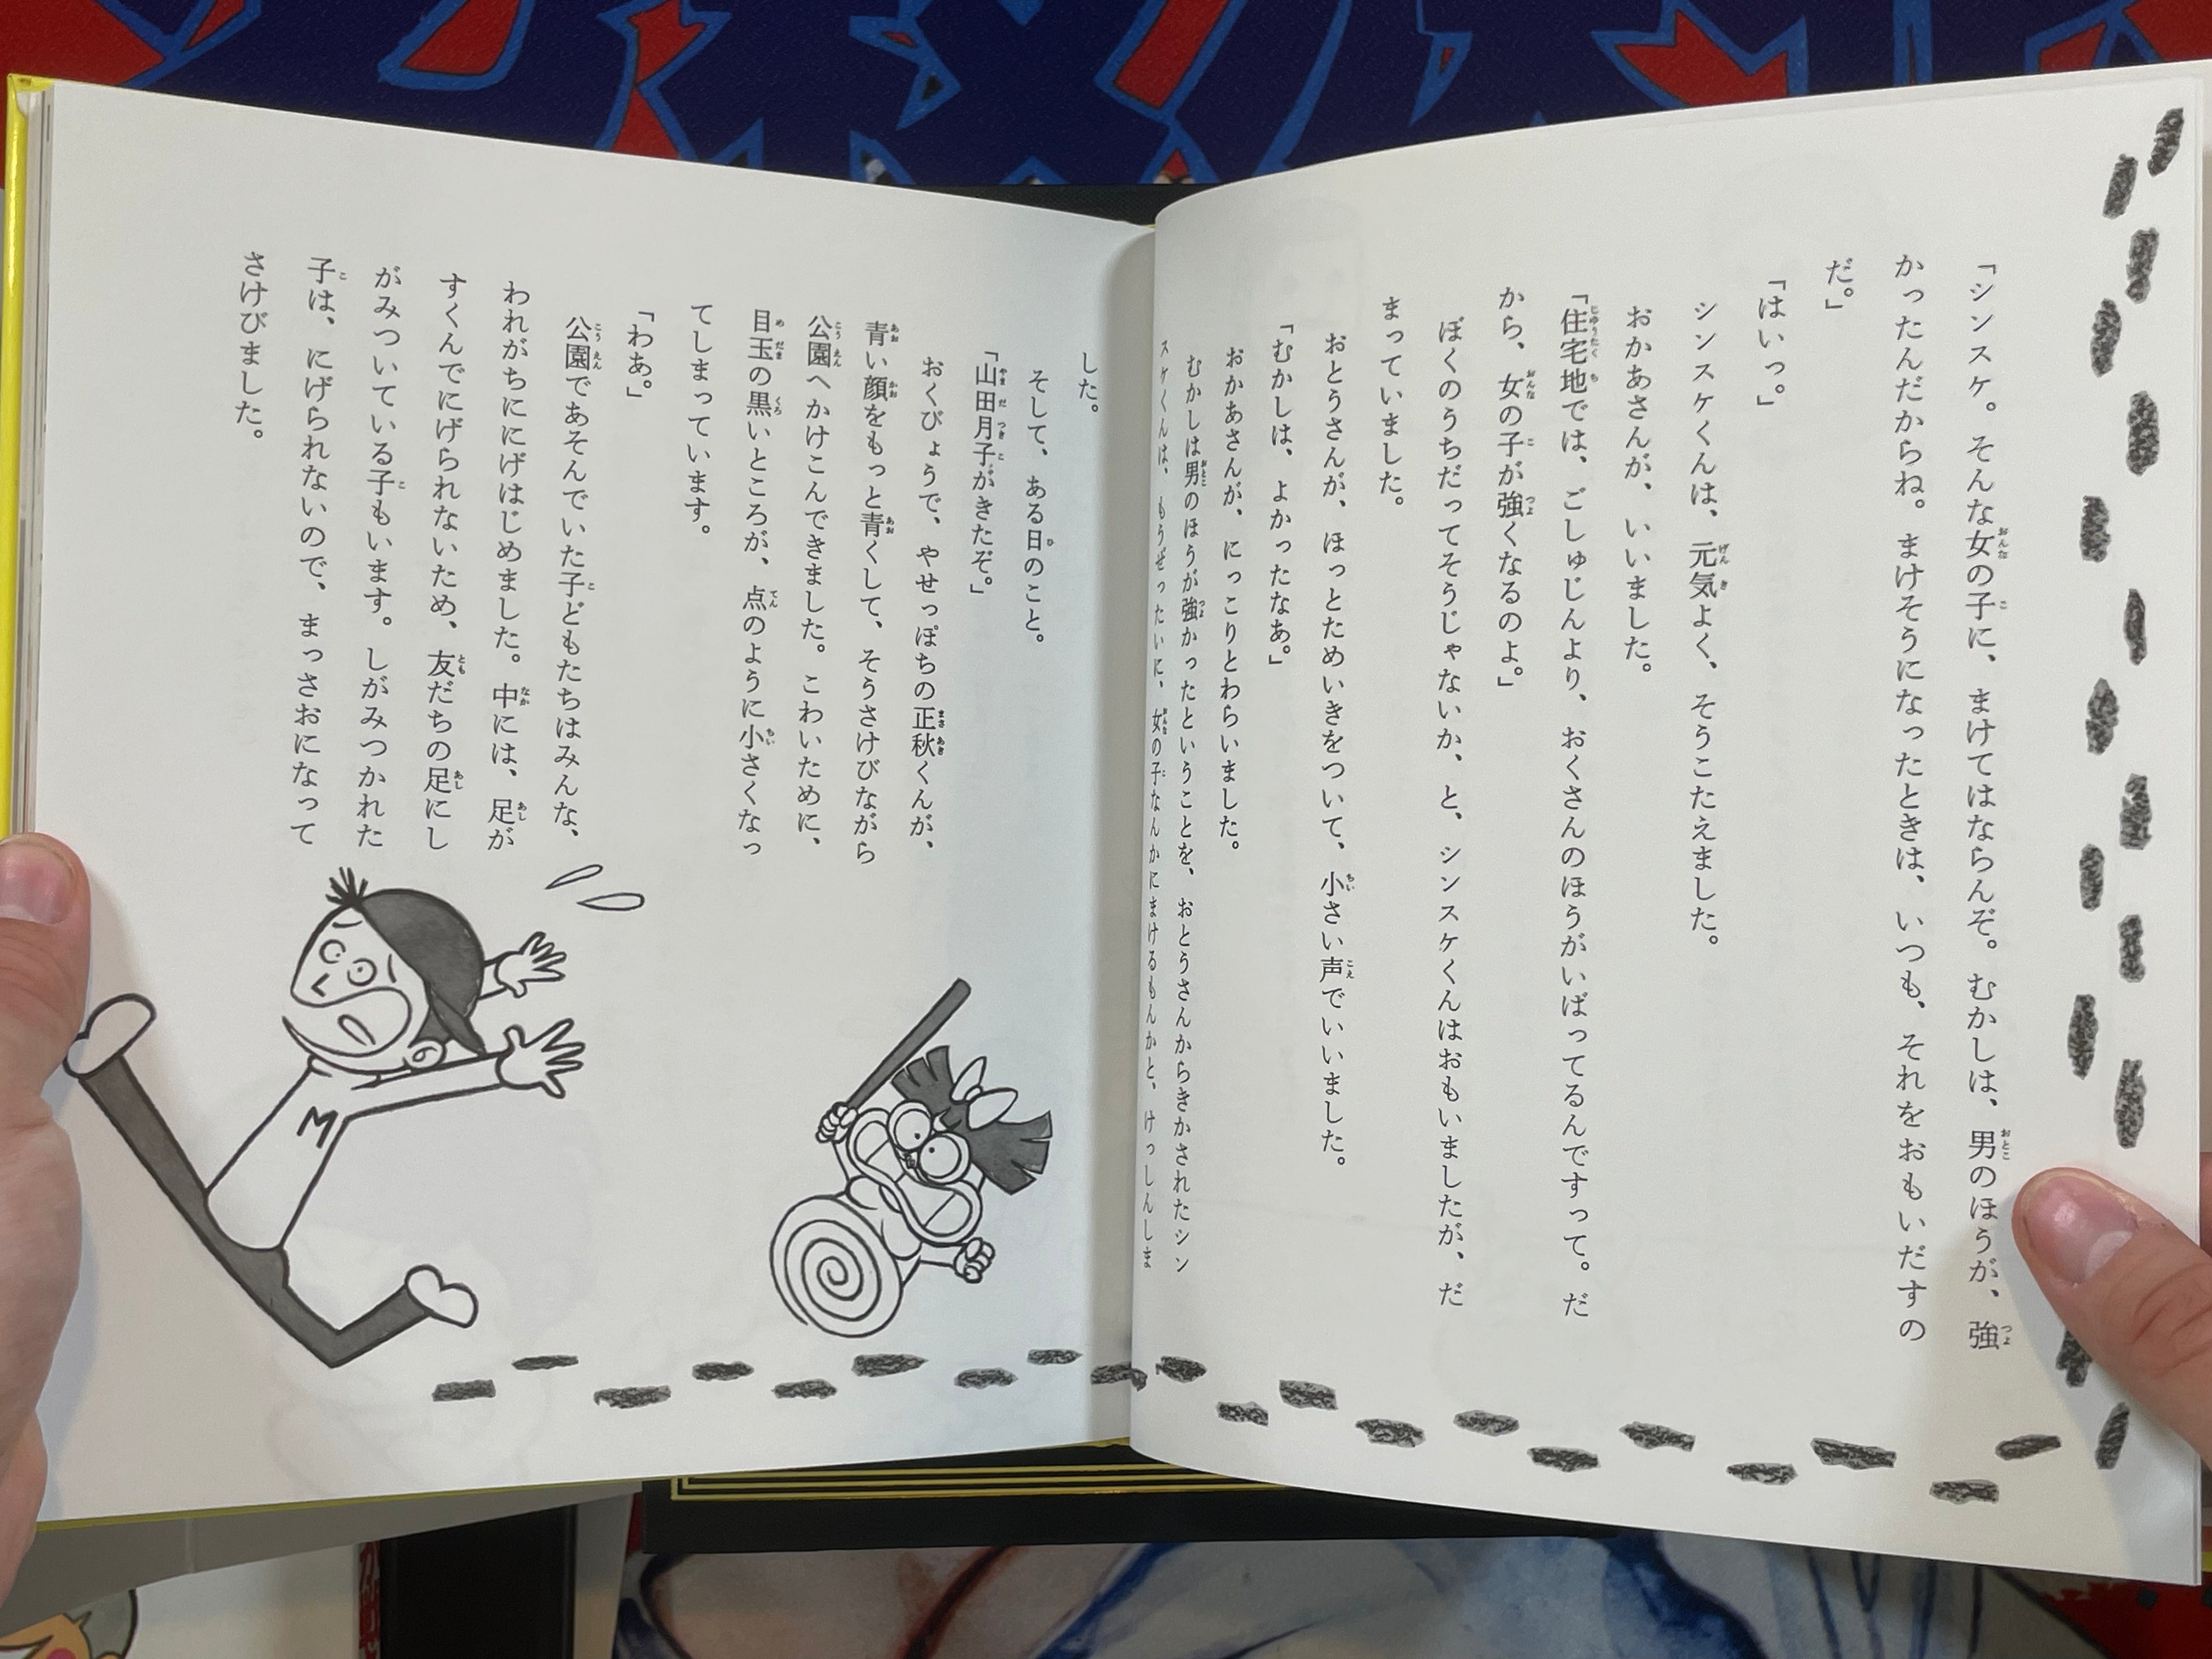 「シンスケ。そんな女の子に、まけてはならんぞ。むかしは、男のほうが、強
かったんだからね。まけそうになったときは、いつも、それをおもいだすの
だ。」
「はいっ。」
シンスケくんは、元気よく、そうこたえました。
おかあさんが、いいました。
「住宅地では、ごしゅじんより、おくさんのほうがいばってるんですって。だ
から、女の子が強くなるのよ。」
ぼくのうちだってそうじゃないか、と、シンスケくんはおもいましたが、だ
まっていました。
おとうさんが、ほっとためいきをついて、小さい声でいいました。
「むかしは、よかったなあ。」
おかあさんが、にっこりとわらいました。
むかしは男のほうが強かったということを、おとうさんからきかされたシン
スケくんは、もうぜったいに、女の子なんかにまけるもんかと、けっしんしま
した。
そして、ある日のこと。
「山田月子がきたぞ。」
おくびょうで、やせっぽちの正秋くんが、
青い顔をもっと青くして、そうさけびながら
公園へかけこんできました。こわいために、
目玉の黒いところが、点のように小さくなっ
てしまっています。
「わあ。」
公園であそんでいた子どもたちはみんな、
われがちににげはじめました。中には、足が
すくんでにげられないため、友だちの足にし
がみついている子もいます。しがみつかれた
子は、にげられないので、まっさおになって
さけびました。
M